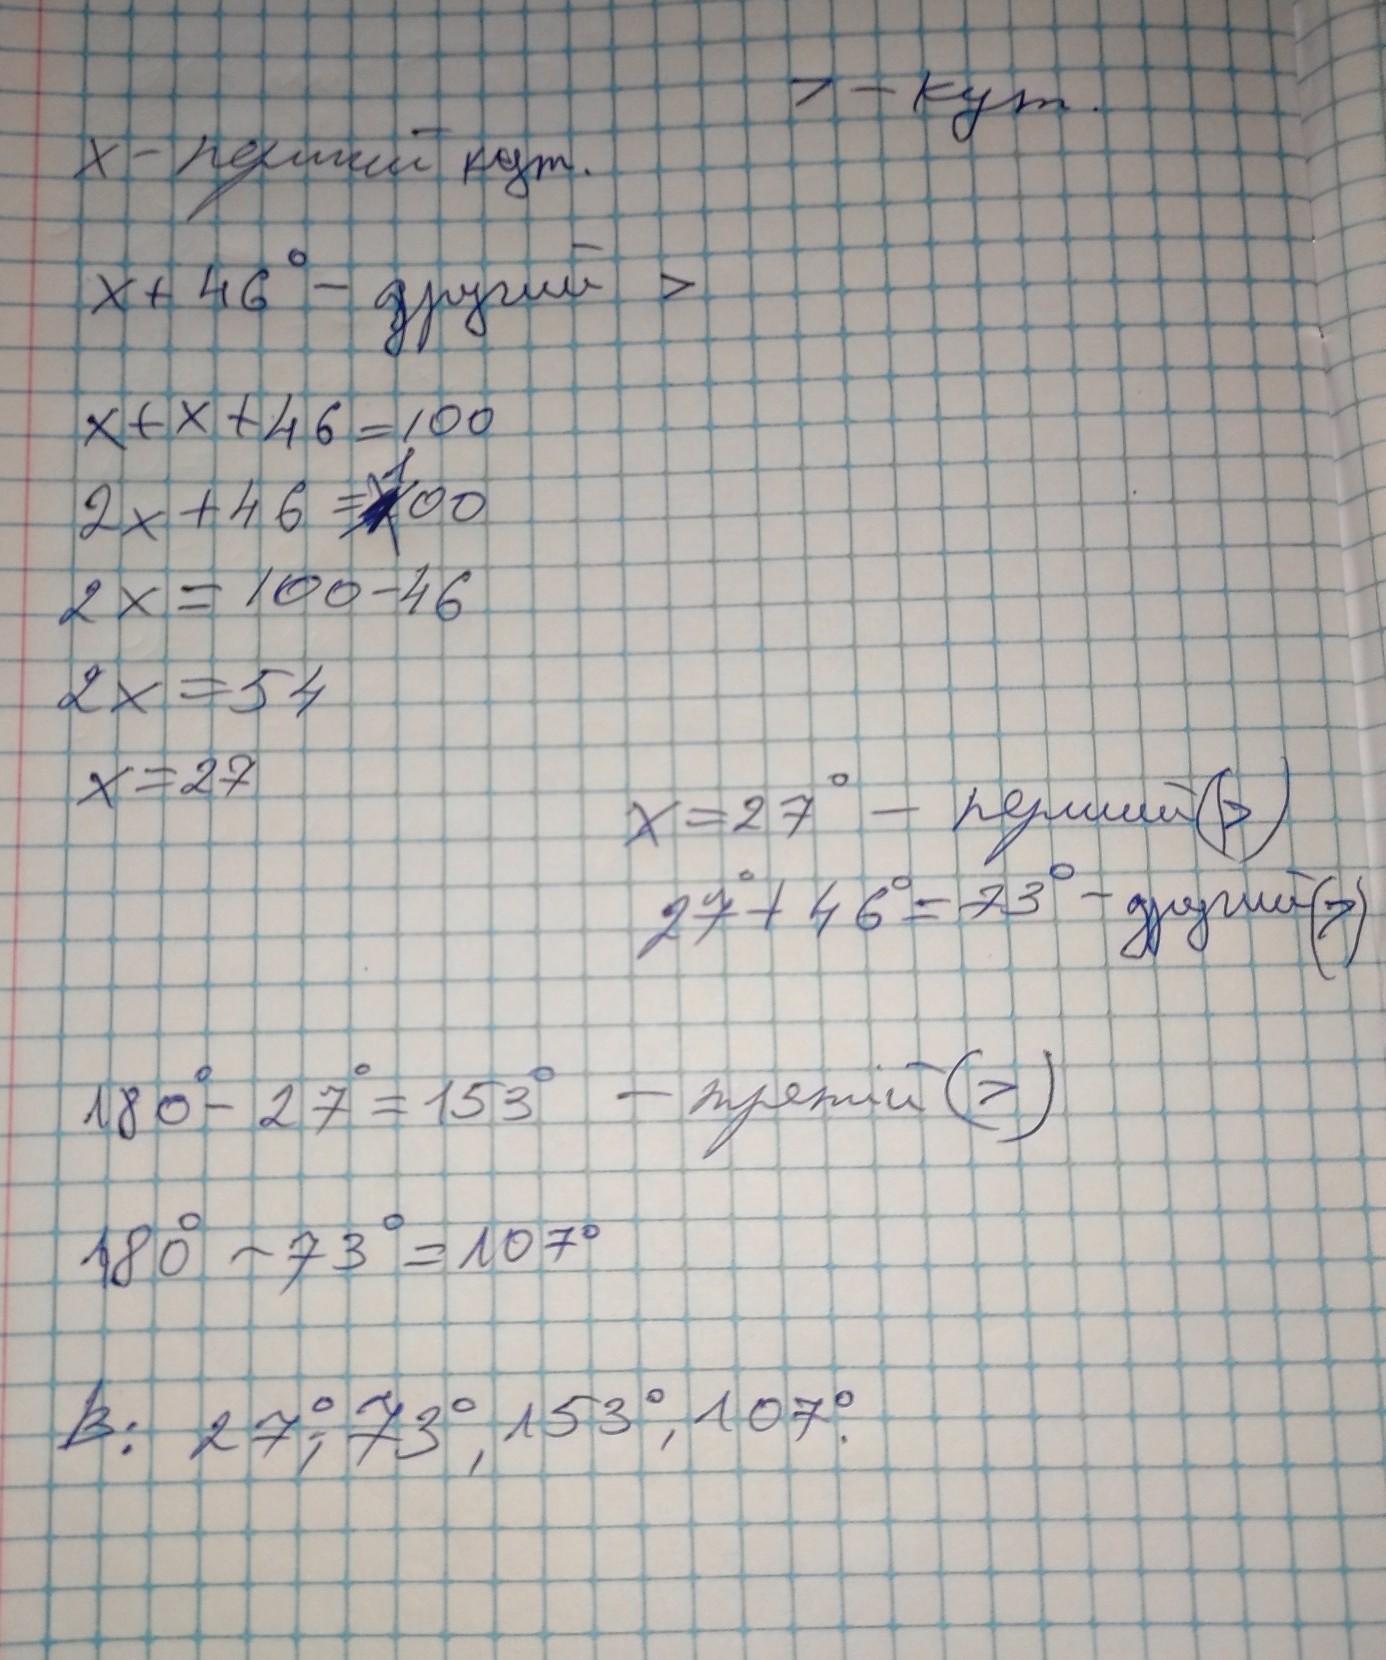 > - кут.
x - перший кут.
x + 46° - другий >
x + x + 46 = 100
2x + 46 = 100
2x = 100 - 46
2x = 54
x = 27
x = 27° - перший (>)
27° + 46° = 73° - другий (>)
180° - 27° = 153° - третій (>)
180° - 73° = 107°
В: 27°; 73°, 153°, 107°.